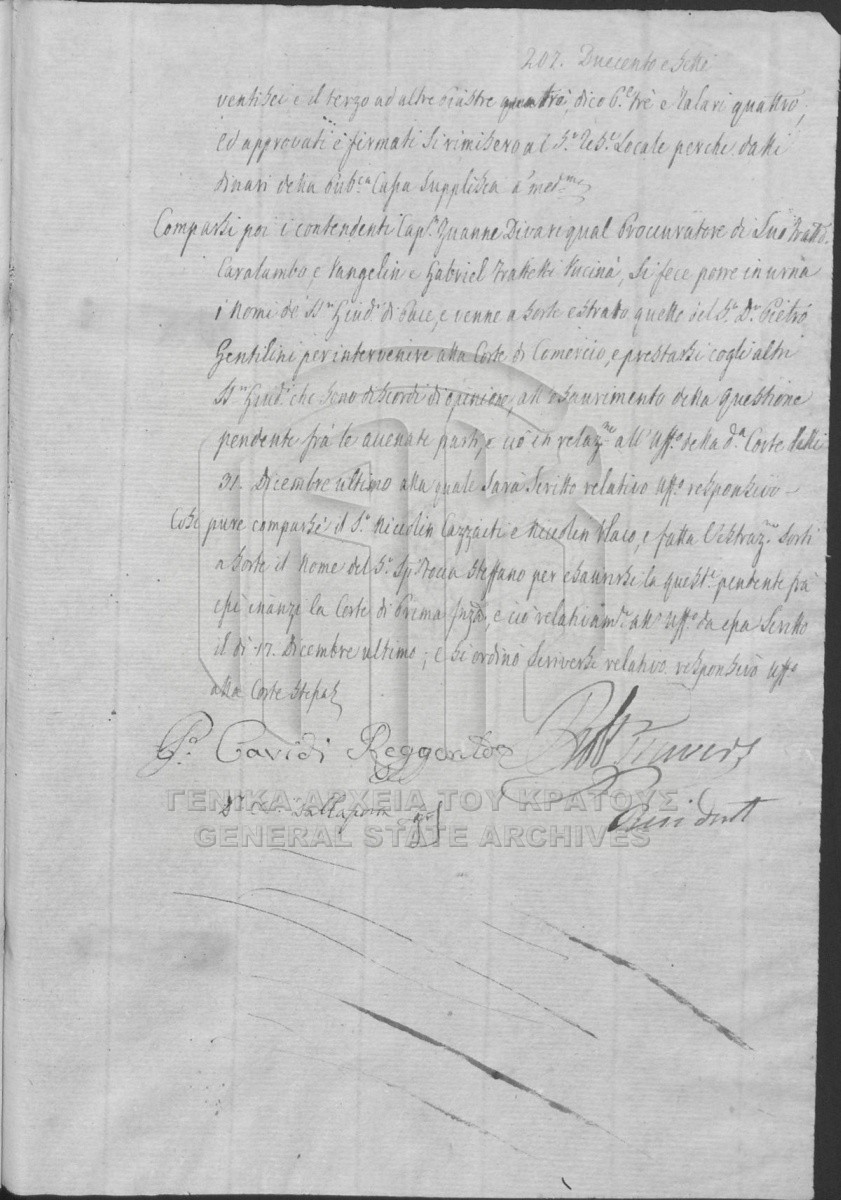 207. Duecento e Sette
ventisei e il terzo ad altre Piastre quattro, dico P.e tre e Talari quattro,
ed approvati e firmati si rimisero al S.r Locale perche dalli
dinari della Pub.ca Cassa supplisca a med.mo
Comparsi poi i contendenti Cap.n Zuanne Divari qual Procuratore di Suo Fratt.o
Caralambo, e Vangelin e Gabriel Frattelli Vucinà, si fece porre in urna
i Nomi de SS.ri Giud.i di Pace, e venne a sorte estratto quello del S.r D.r Pietro
Gentilini per intervenire alla Corte di Comercio, e prestarsi cogli altri
SS.ri Giud.i che sono discordi di opinione, all'esaurimento della questione
pendente frà le avenate parti, e ciò in relaz.ne all'Uff.o della d.a Corte delli
31. Dicembre ultimo alla quale sarà scritto relativo Uff.o responsivo –
Così pure comparse il S.r Niccolin Cazzaiti e Niccolin Vlaco, e fatta l'estraz.ne sortì
a sorte il Nome del S.r Stefano per esaurirsi la quest.e pendente frà
essi inanzi la Corte di Prima Inza, e ciò relativam.e all'Uff.o da essa scritto
il dì 17. Dicembre ultimo; e si ordinò scriversi relativo responsivo Uff.o
alla Corte stessa
G.o Cavidi Reggente
Presidente
ΓΕΝΙΚΑ ΑΡΧΕΙΑ ΤΟΥ ΚΡΑΤΟΥΣ
GENERAL STATE ARCHIVES